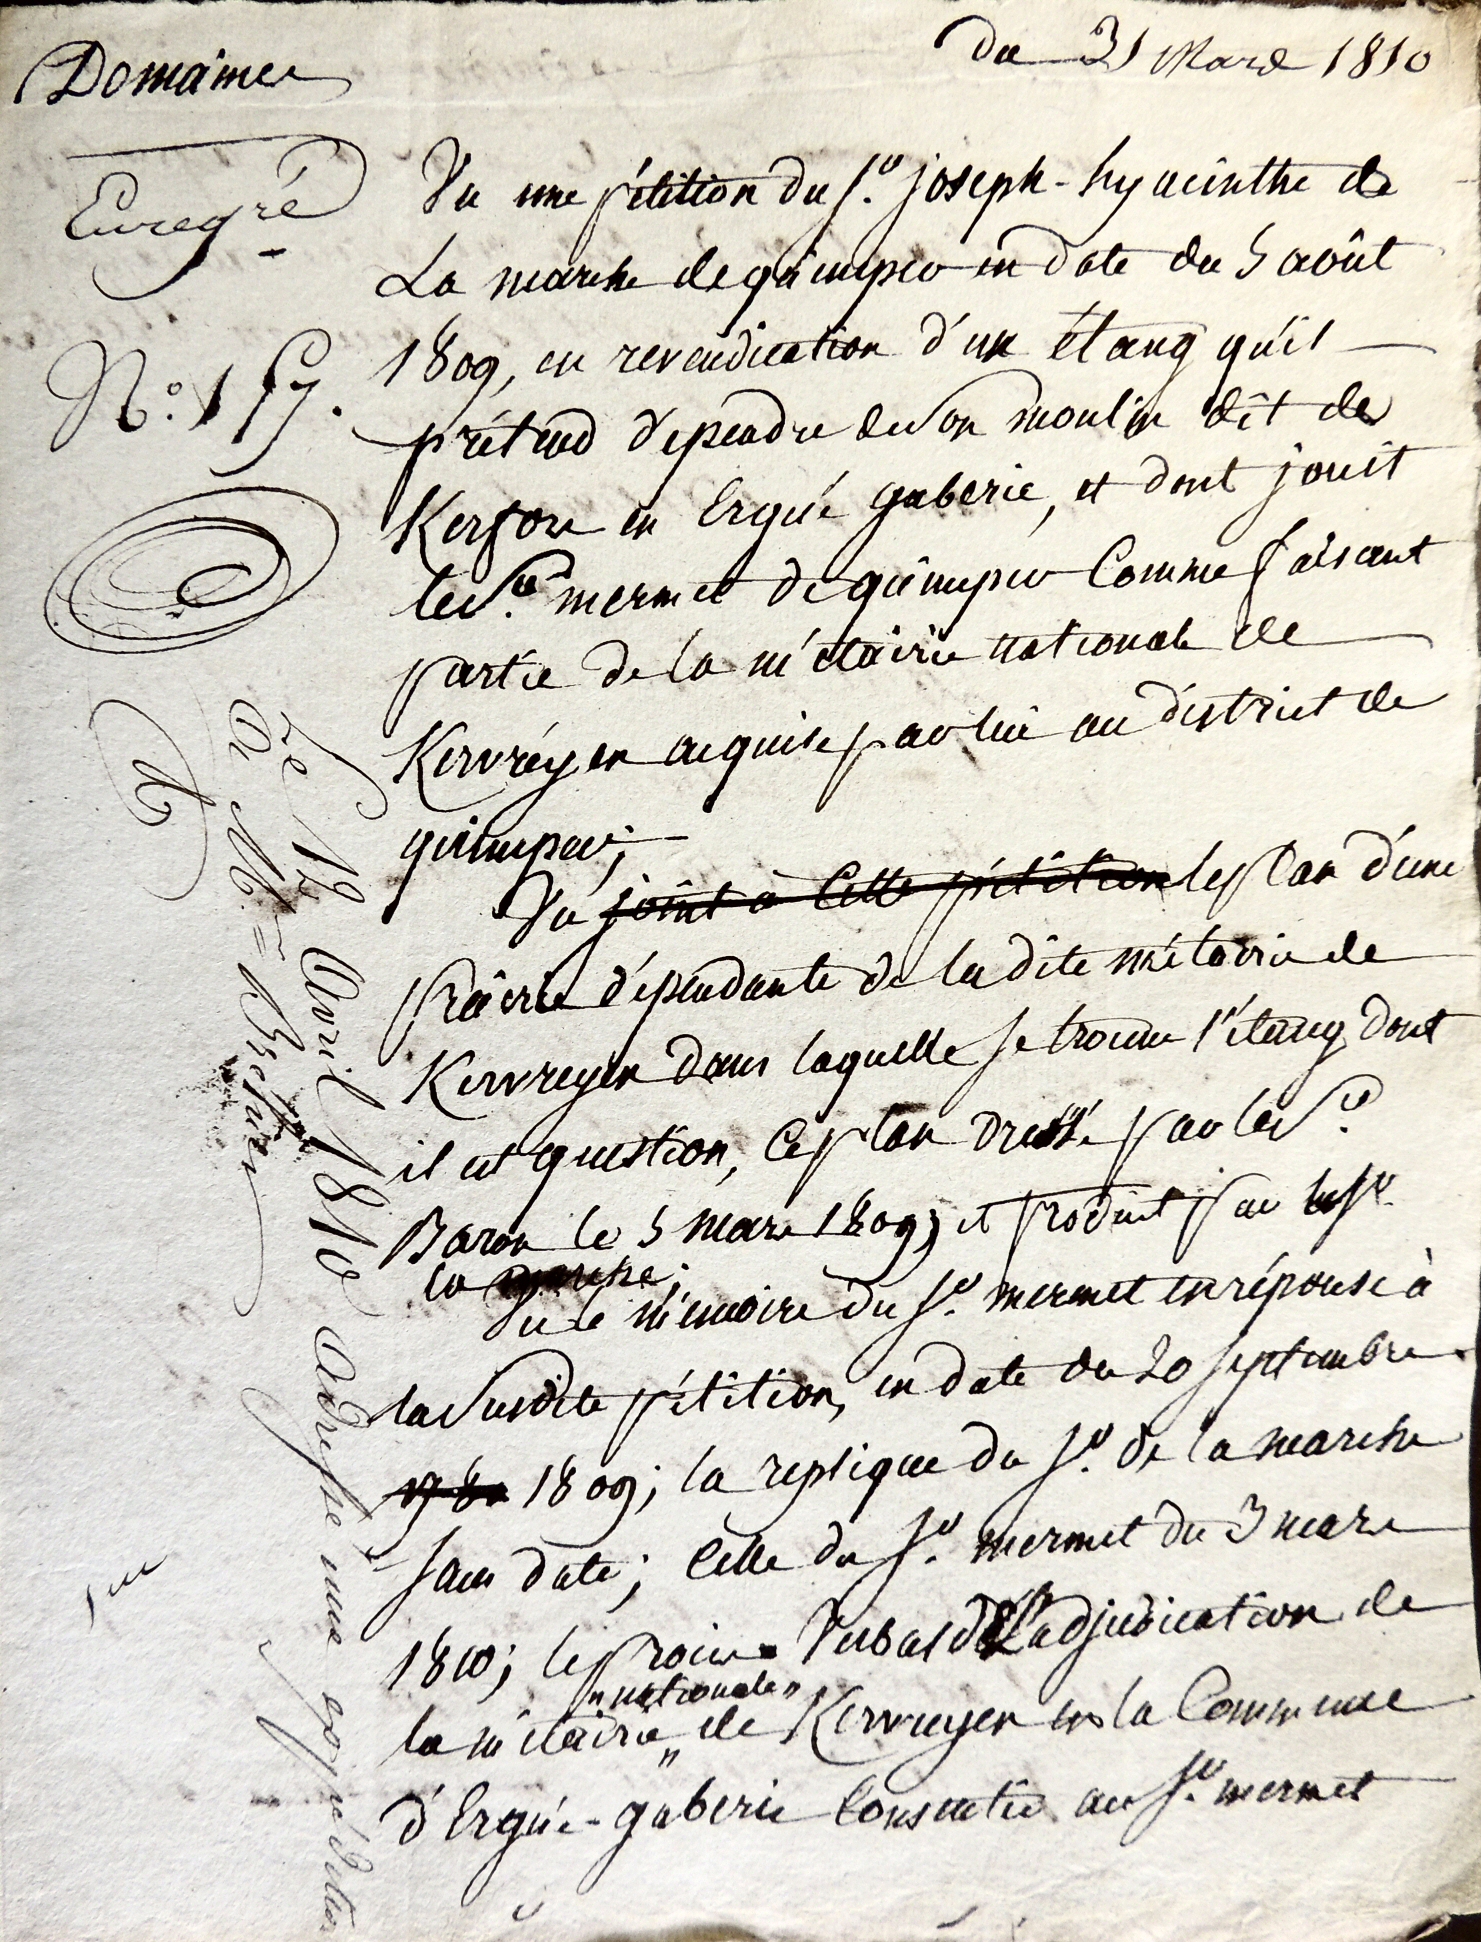 Domaines
du 31 Mars 1810
Enregré
N.° 157.
Vu une pétition du Sr. joseph-hyacinthe de
La marche de quimper en date du 5 août
1809, en revendication d'un étang qu'il
prétend dépendre de son moulin dit de
Kerfors en Ergué gaberic, et dont jouit
le Sr. mermet de quimper comme faisant
partie de la métairie nationale de
Kervréyen acquise par lui au district de
quimper;
Vu joint à cette pétition le plan d'une
prairie dépendante de la dite métairie de
Kervreyen dans laquelle se trouve l'étang dont
il est question, ce plan dressé par le Sr.
Baron le 5 mars 1809; et produit par le Sr.
la marche;
Vu le mémoire du Sr. mermet en réponse à
la susdite pétition, en date du 20 septembre
1809; la replique du Sr. de la marche
sans date; celle du Sr. mermet du 3 mars
1810; le procès verbal de l'adjudication de
"nationale"
la métairie " de Kervreyen en la Commune
d'Ergué-gaberic consentie au Sr. mermet
Le 12 avril 1810 adressé une expédition
à Mr.